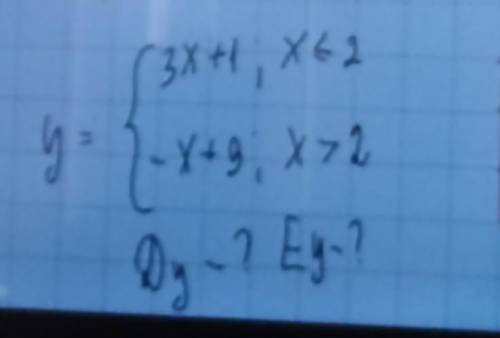 3x+1; x<2
y= {
-x+9; x>2
Dy-? Ey-?